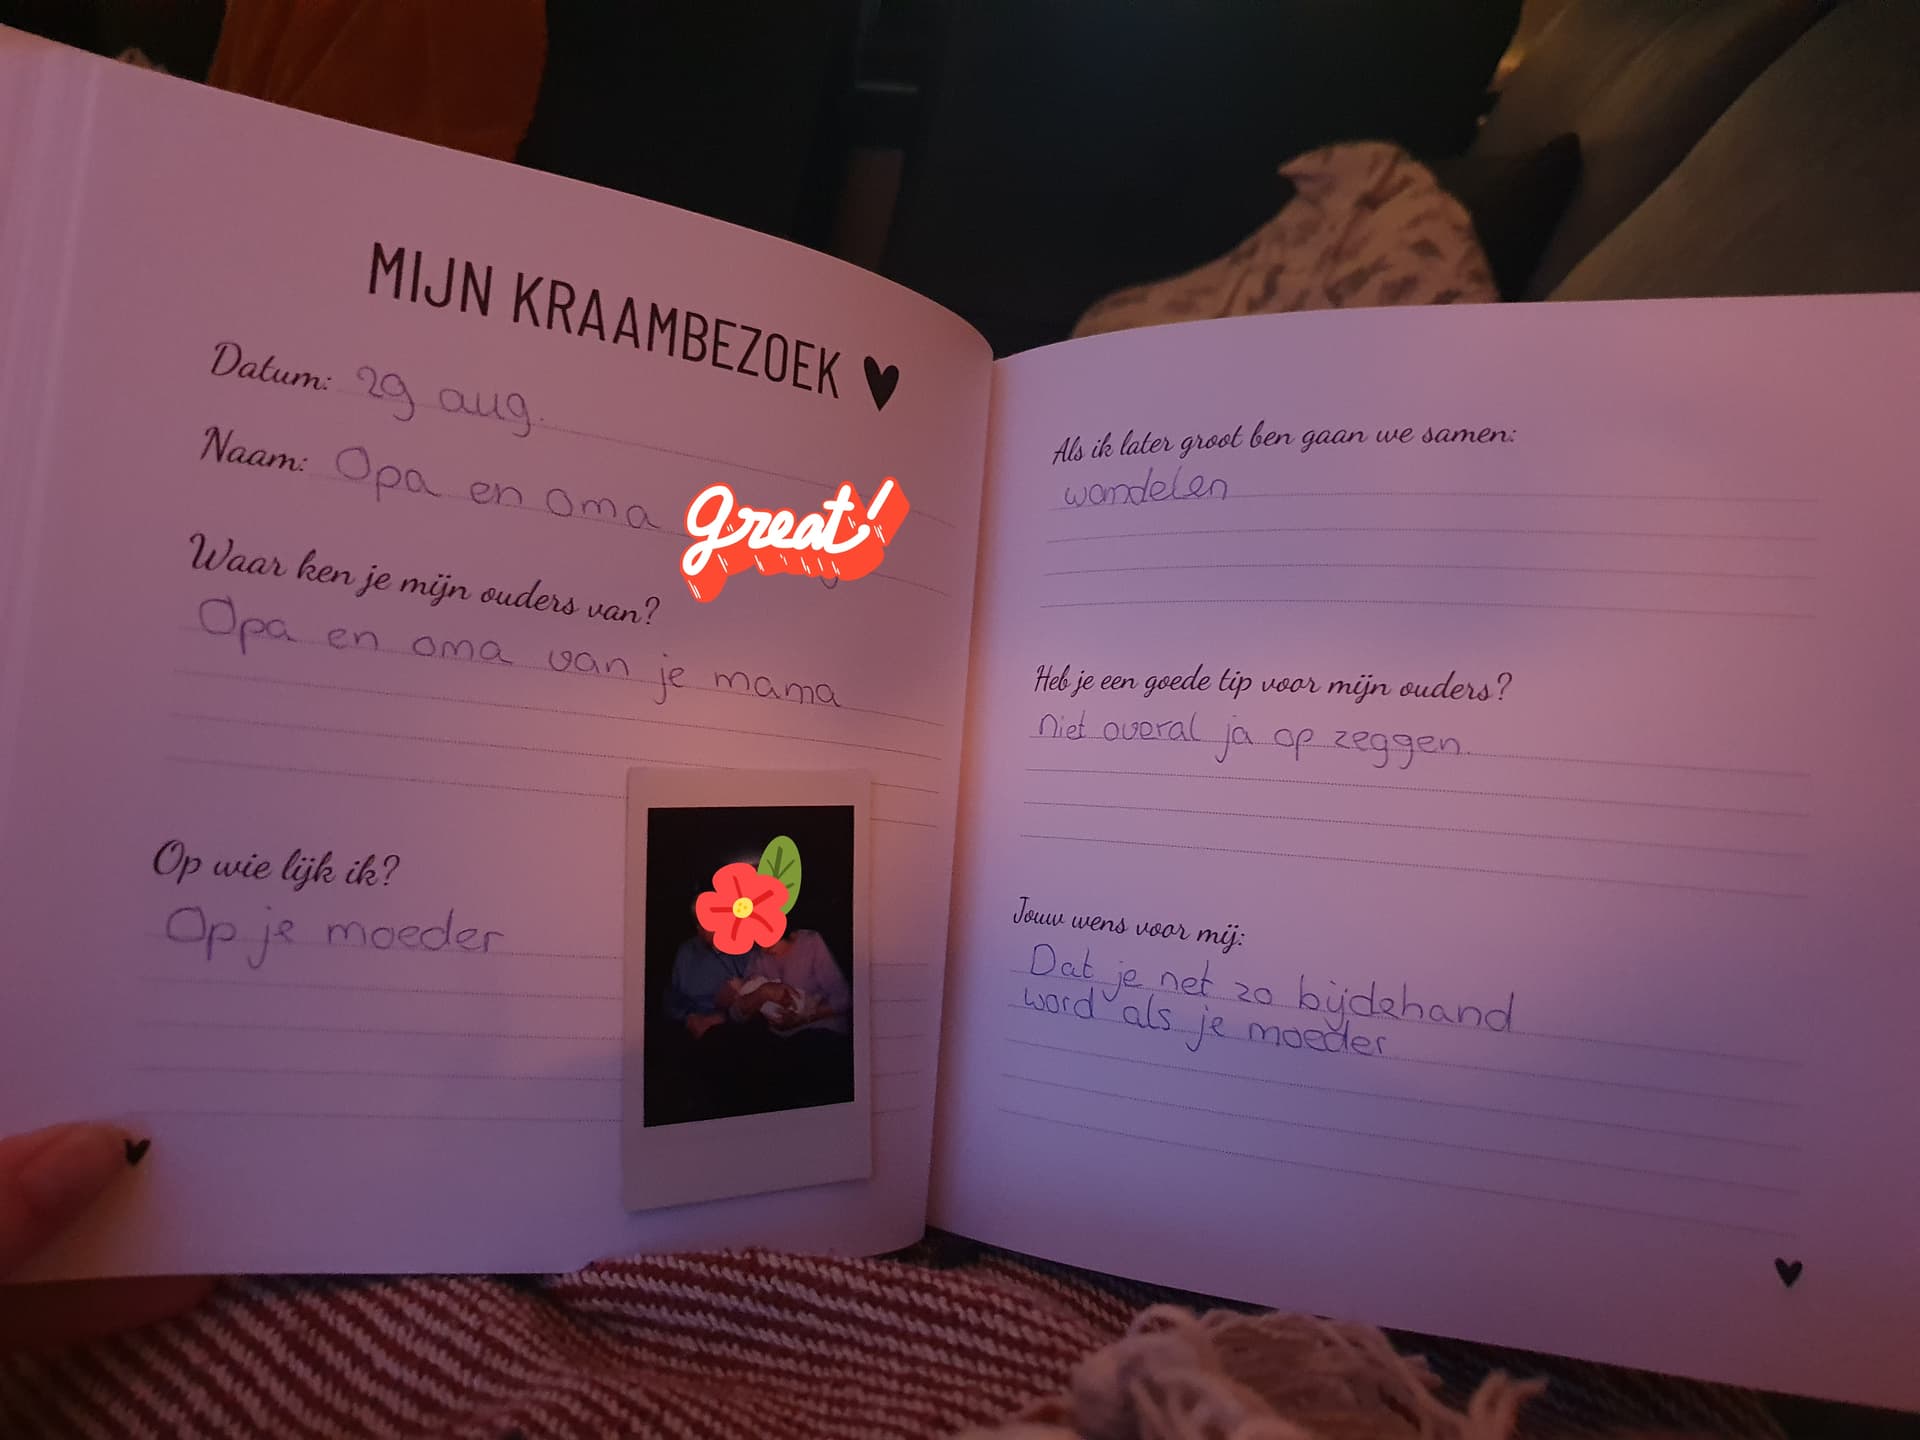 MIJN KRAAMBEZOEK
Datum: 29 aug.
Naam: Opa en oma great!
Waar ken je mijn ouders van?
Opa en oma van je mama
Op wie lijk ik?
Op je moeder
Als ik later groot ben gaan we samen:
wandelen
Heb je een goede tip voor mijn ouders?
niet overal ja op zeggen.
Jouw wens voor mij:
Dat je net zo bijdehand
word als je moeder